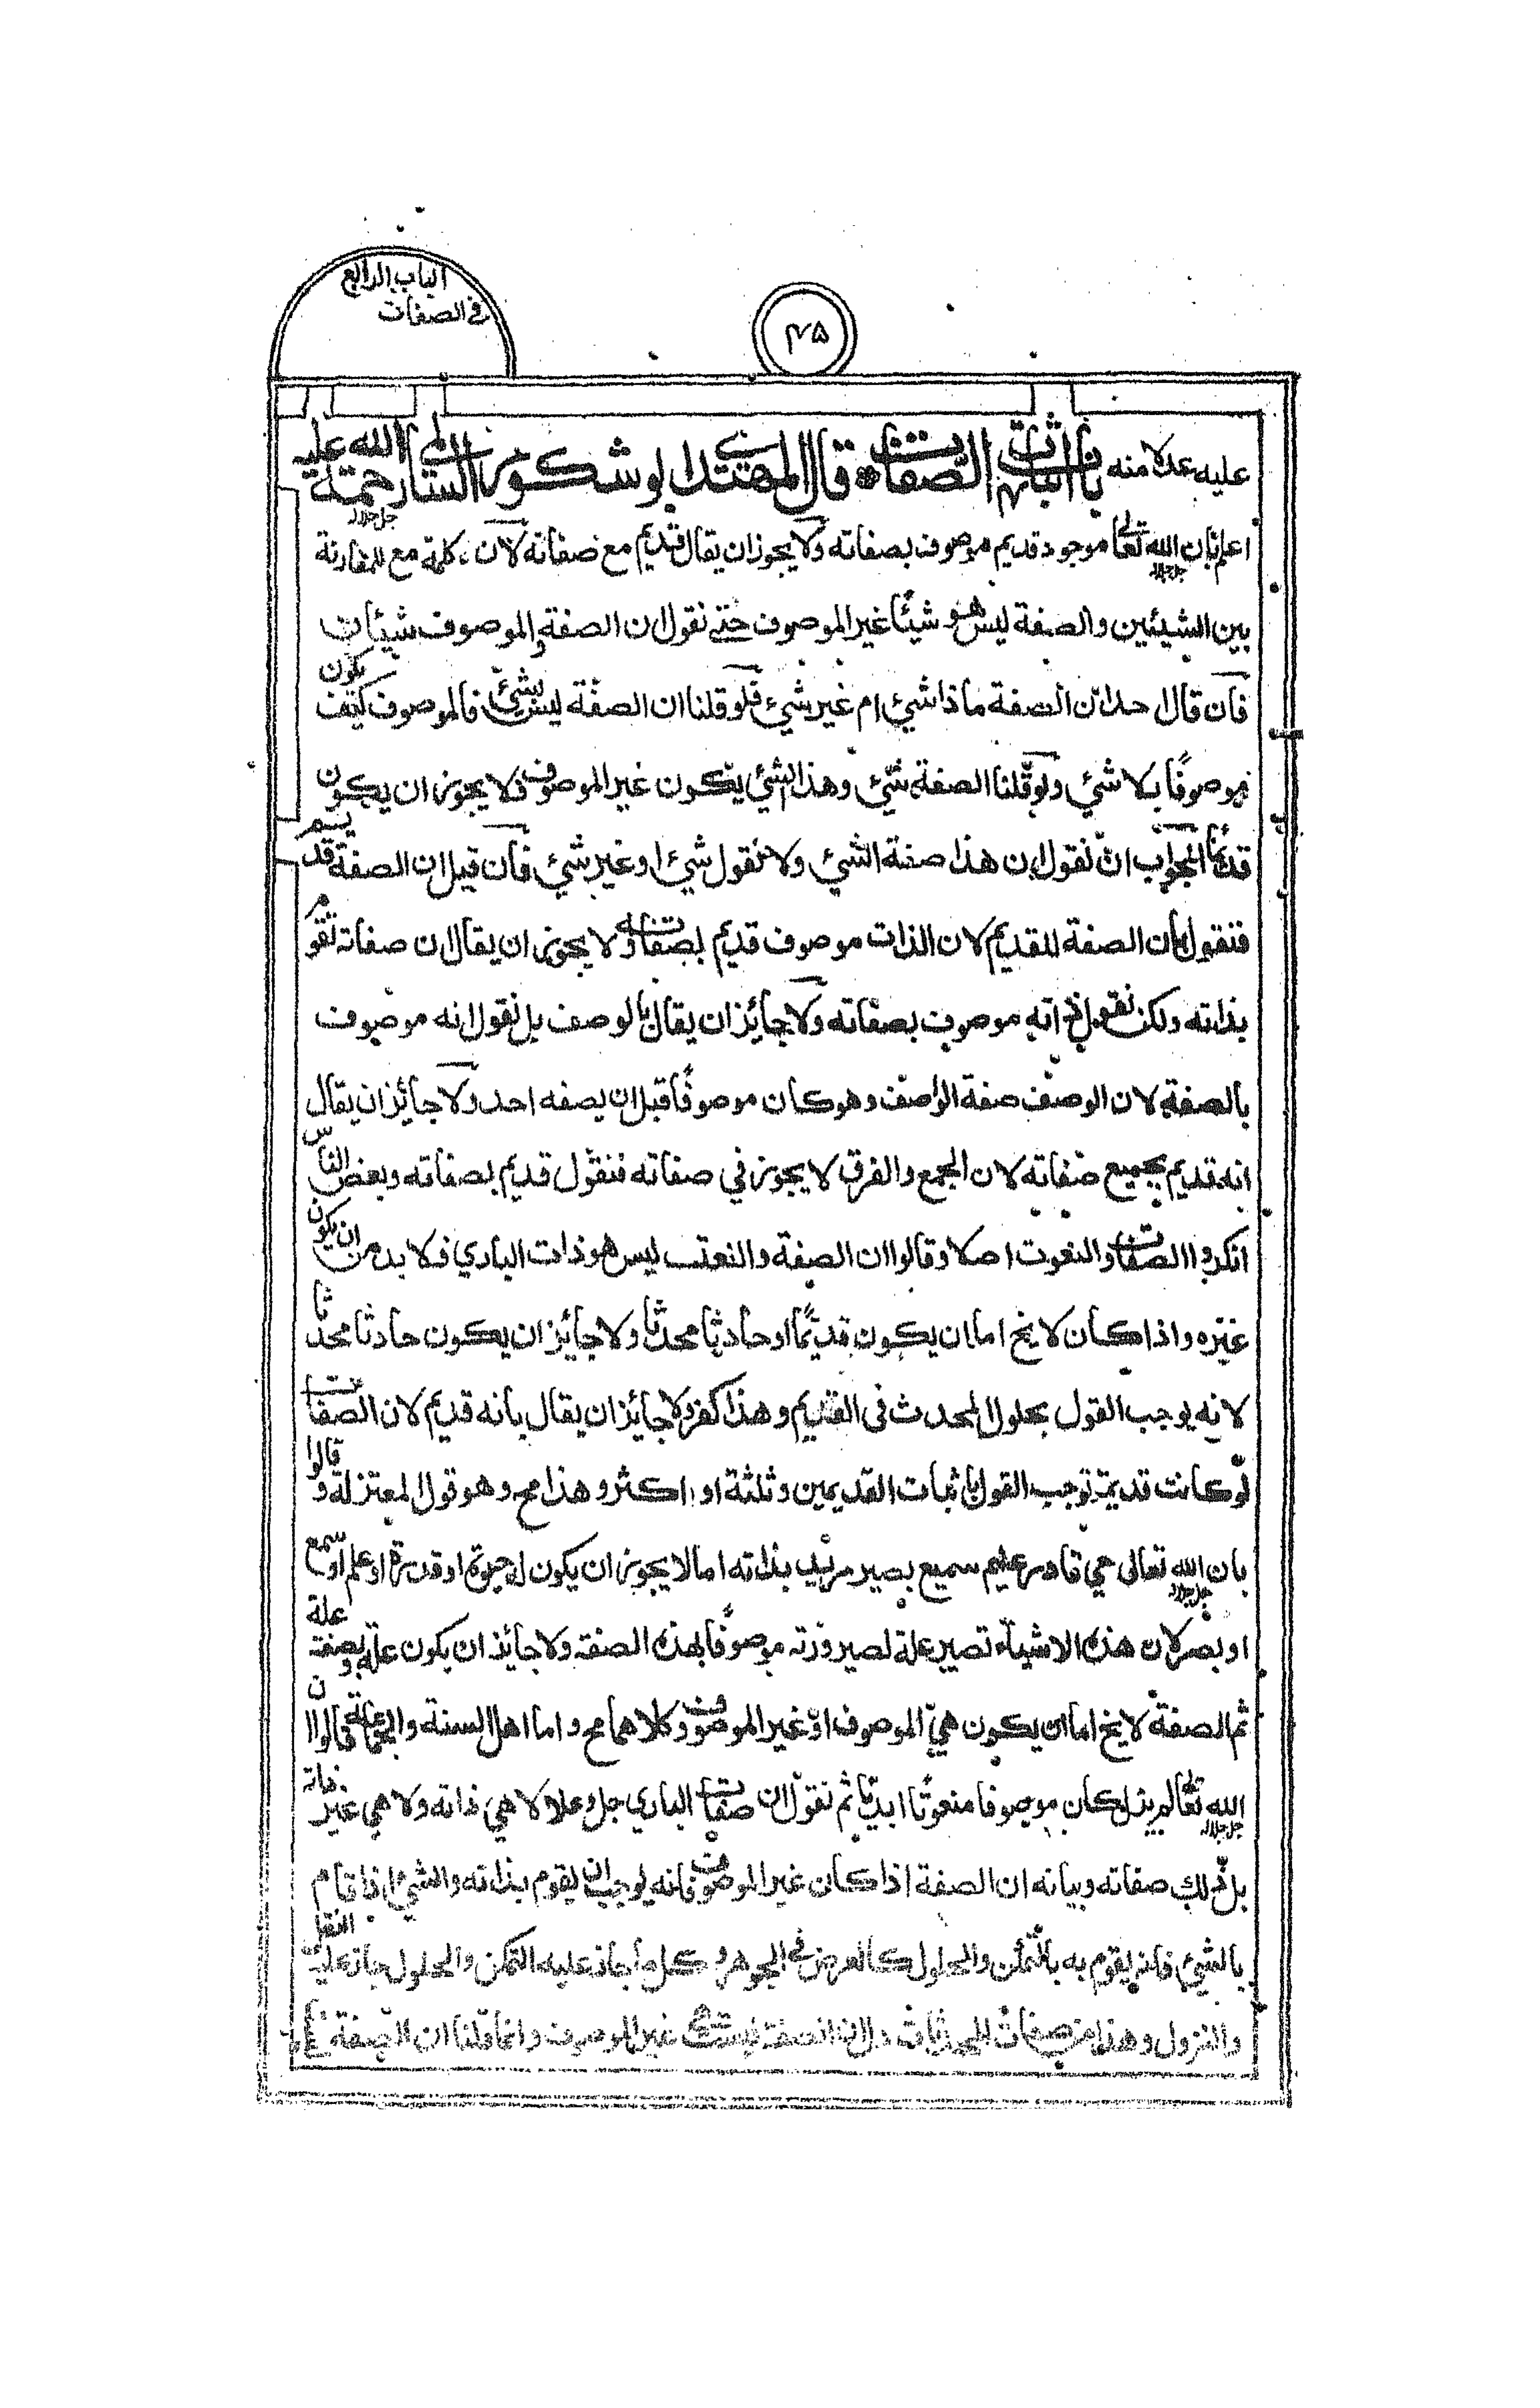 الباب الرابع
في الصفات
۴۵
عليه عدلا منه باب اثبات الصفات قال المهتدى ابو شكور السالمي رحمة الله عليه
اعلم بان الله تعالى جل جلاله موجود قديم موصوف بصفاته ولا يجوز ان يقال قديم مع صفاته لان كلمة مع للمقارنة
بين الشيئين والصفة ليس هو شيئًا غير الموصوف حتى نقول ان الصفة والموصوف شيئان
فان قال احد ان الصفة ماذا شيئ ام غير شيئ فلو قلنا ان الصفة ليس بشيئ فالموصوف كيف يكون
موصوفًا بلا شيئ ولو قلنا الصفة شيئ وهذا الشيئ يكون غير الموصوف فلا يجوز ان يكون
قديمًا الجواب ان نقول ان هذا صفة الشيئ ولا نقول شيئ او غير شيئ فان قيل ان الصفة قديم
فنقول بان الصفة للقديم لان الذات موصوف قديم بصفاته ولا يجوز ان يقال ان صفاته تقوم
بذاته ولكن نقول ذاته موصوف بصفاته ولا جائز ان يقال بالوصف بل نقول انه موصوف
بالصفة لان الوصف صفة الواصف وهو كان موصوفًا قبل ان يصفه احد ولا جائز ان يقال
انه قديم بجميع صفاته لان الجمع والفرق لا يجوز في صفاته فنقول قديم بصفاته وبعض الناس
انكروا الصفات والنعوت اصلا وقالوا ان الصفة والنعت ليس هو ذات الباري فلا بد من ان يكون
غيره واذا كان لا يخ اما ان يكون قديمًا او حادثا محدثا ولا جائز ان يكون حادثا محدثا
لانه يوجب القول بحلول المحدث في القديم وهذا كفر ولا جائز ان يقال بانه قديم لان الصفات
لو كانت قديمة توجب القول باثبات القديمين وثلثة او اكثر وهذا مح وهو قول المعتزلة وقالوا
بان الله تعالى جل جلاله حي قادر عليم سميع بصير مريد بذاته اما لا يجوز ان يكون له حيوة او قدرة او علم او سمع
او بصر لان هذه الاشياء تصير علة لصيرورته موصوفا بهذه الصفة ولا جائز ان يكون علة وبصفته علة
ثم الصفة لا يخ اما ان يكون هي الموصوف او غير الموصوف وكلاهما مح واما اهل السنة والجماعة قالوا ان
الله تعالى جل جلاله لم يزل كان موصوفا منعوتا ابديا ثم نقول ان صفات الباري جل وعلا لا هي ذاته ولا هي غير ذاته
بل ذلك صفاته وبيانه ان الصفة اذا كان غير الموصوف فانه يوجب ان يقوم بذاته والشيئ اذا قام
بالشيئ فانه يقوم به بالتمكن والحلول كالعرض في الجوهر وكل ما جاز عليه التمكن والحلول جاز عليه النقل
والنزول وهذا من صفات المحدثات دل ان الصفة ليست غير الموصوف وانما قلنا ان الصفة